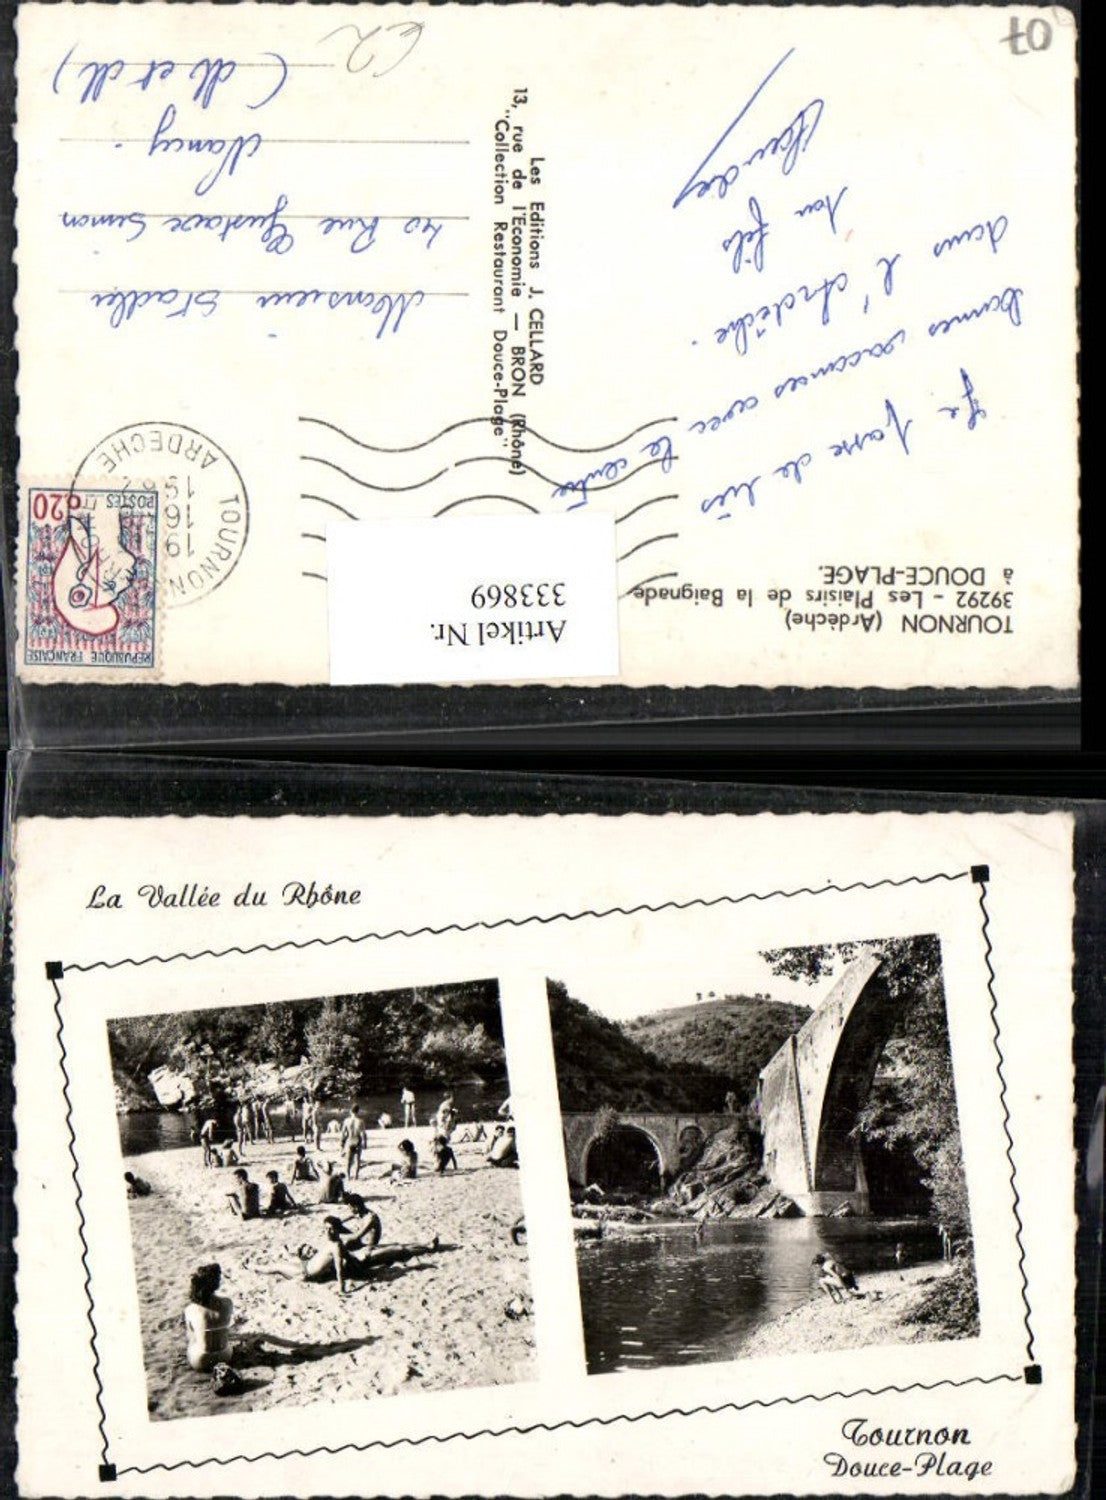 TOURNON (Ardèche)
39292 - Les Plaisirs de la Baignade
à DOUCE-PLAGE.
Je passe de très
bonnes vacances avec le centre
dans l'Ardèche.
ton fils
Les Editions J. CELLARD
13, rue de l'Economie — BRON (Rhône)
"Collection Restaurant Douce-Plage"
RÉPUBLIQUE FRANÇAISE
0.20
POSTES
TOURNON
ARDECHE
19
16
Monsieur Stadler
40 Rue Gustave Simon
Nancy.
(M et M)
Artikel Nr.
333869
€2
07
La Vallée du Rhône
Tournon
Douce-Plage